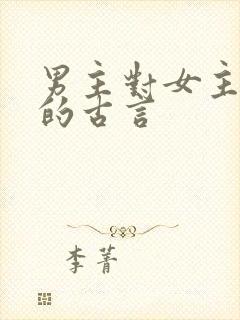 男主對女主
的古言
李菁